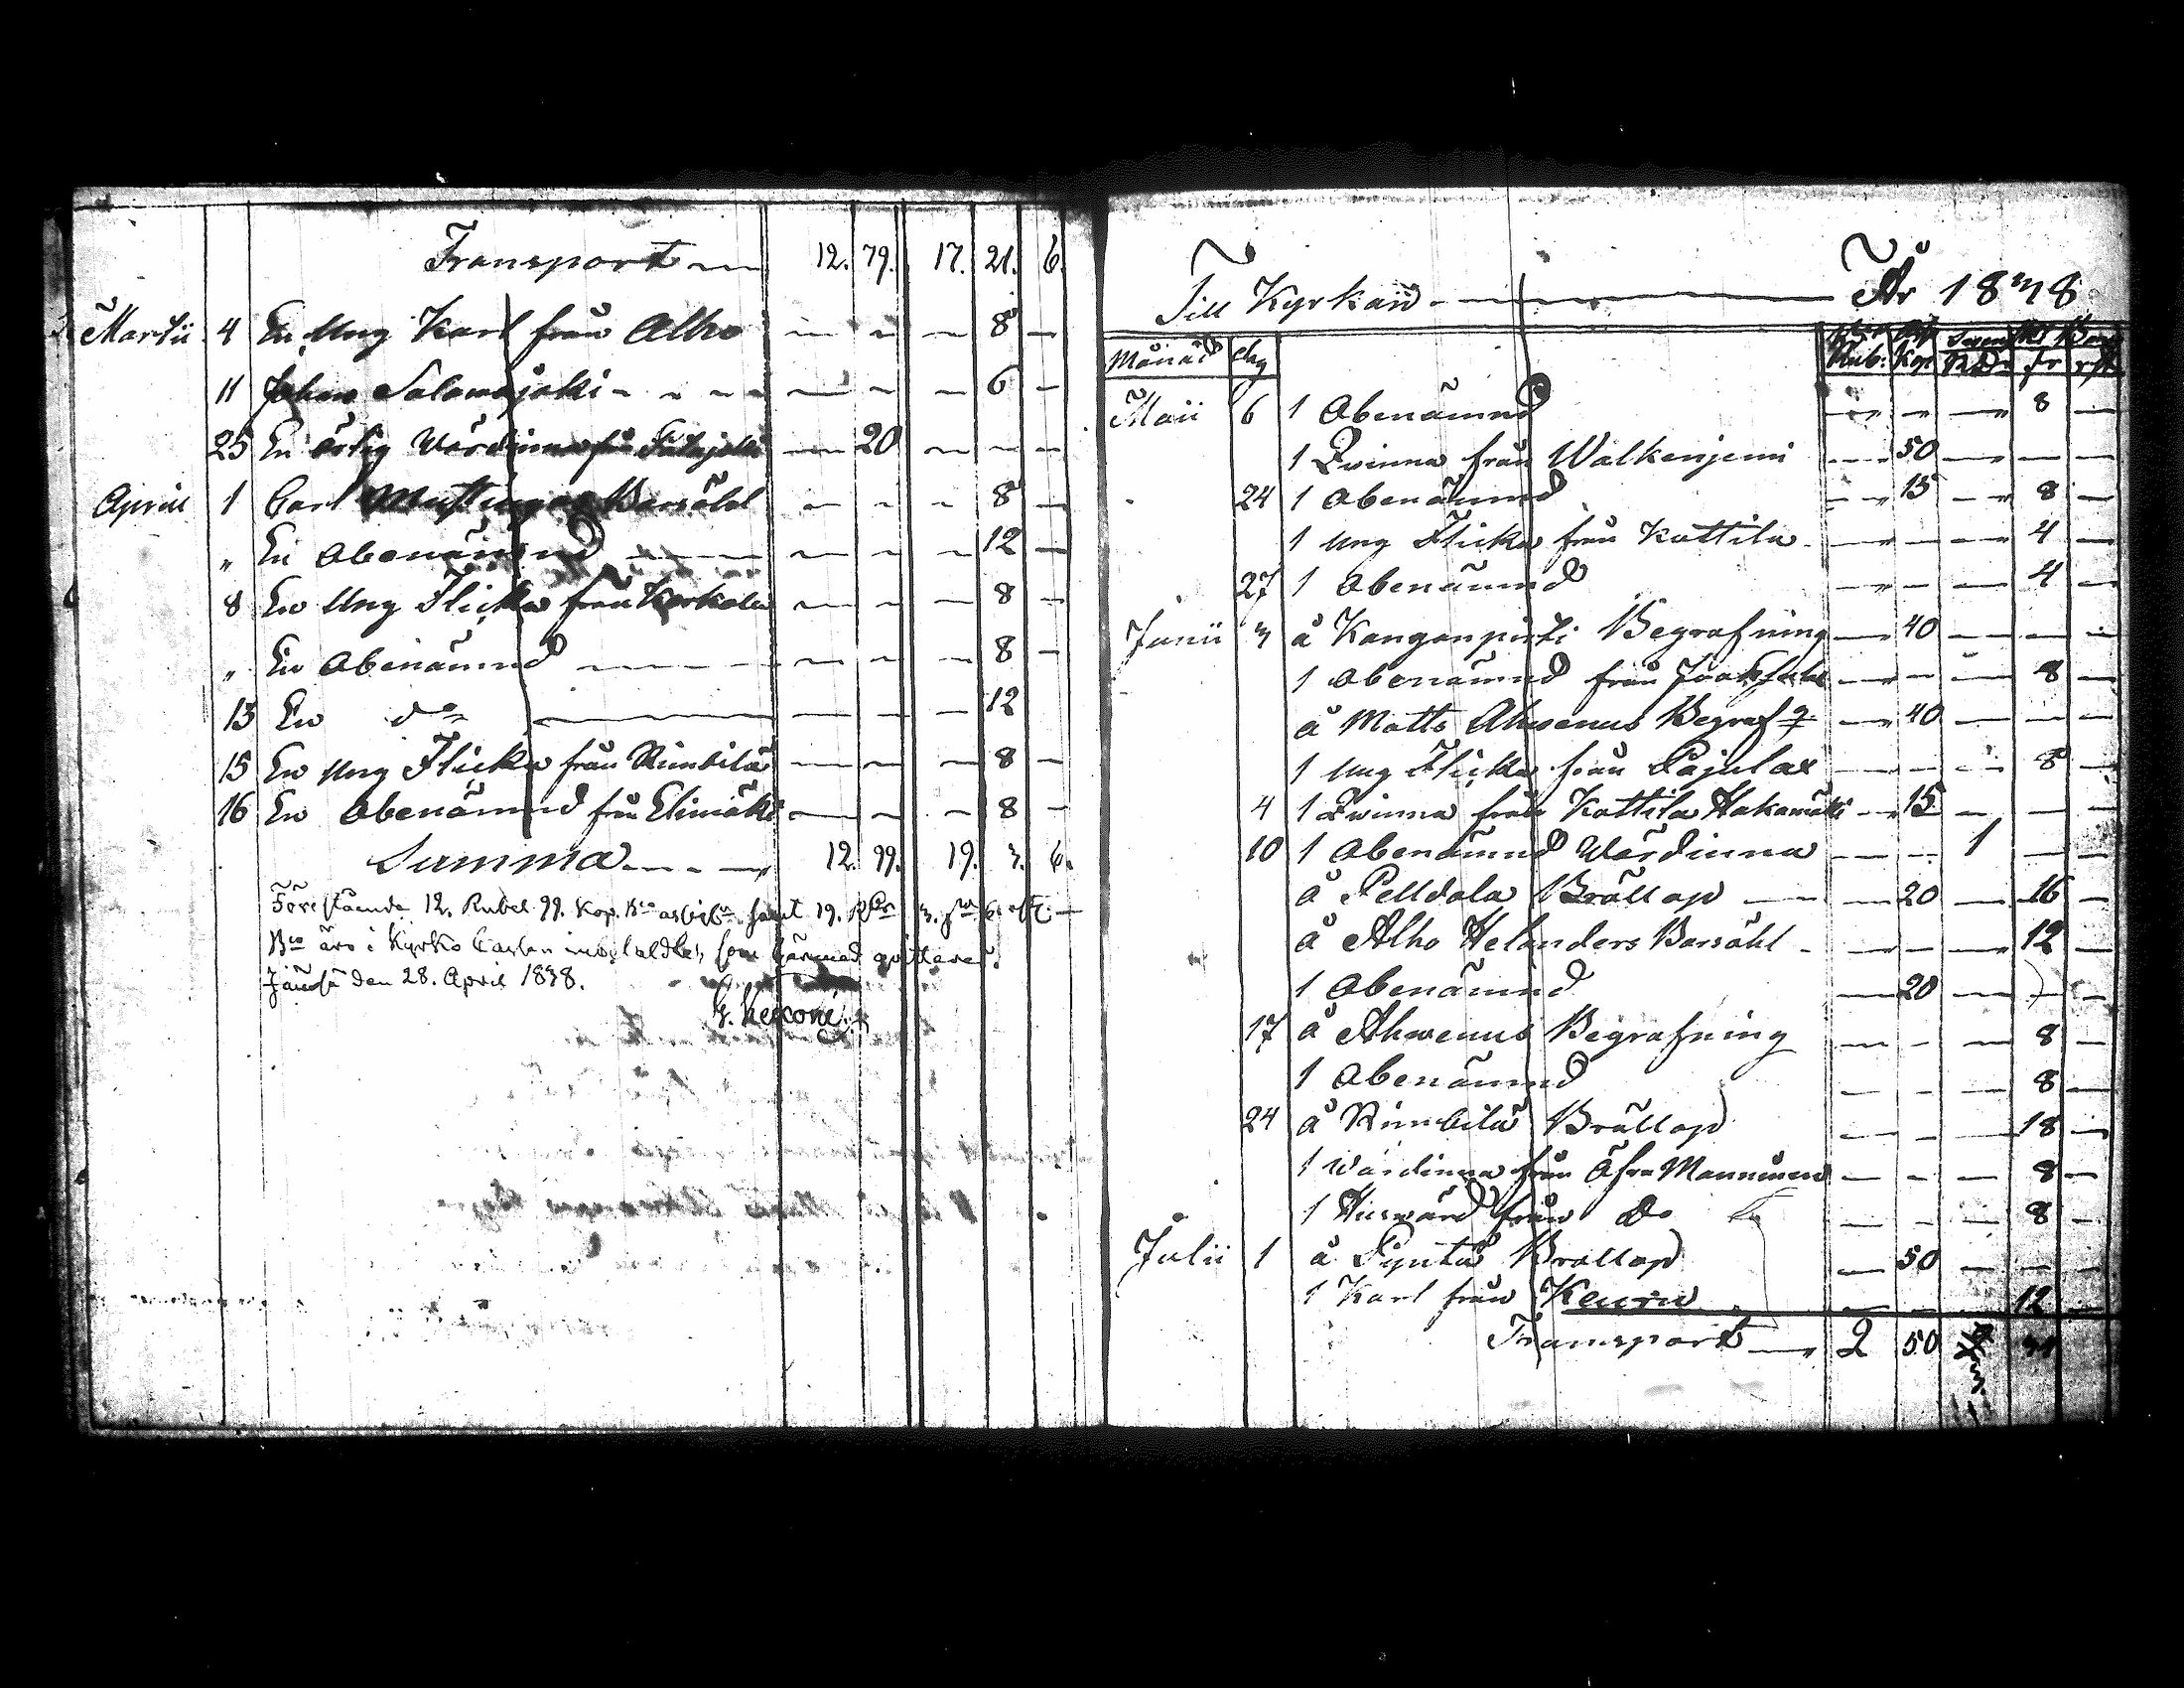 Transport 12. 79. 17. 21. 6.
Martii 4 En Ung Karl från Alho — — — 8 —
11 Johan Salomojoki — — — 6 —
25 En ärlig Värdinna från — 20 — — —
April 1 Carl Barsöhl — — — 8 —
" En Obenämnd — — — 12 —
8 En Ung Flicka från Korkola — — — 8 —
" En Obenämnd — — — 8 —
13 En do — — — 12
15 En Ung Flicka från Rimbilä — — — 8 —
16 En Obenämnd från Elimäki — — — 8 —
Summa 12. 99. 19. 3. 6.
Förestående 12. Rubel 99. Kop. samt 19. 3. 6.
Bco äro i Kyrko Cassan som härmed qvitteras.
Jämsä den 28. April 1838.
Till Kyrkan — År 1838
Månad dag Rub: Kop RD fr
Maii 6 1 Obenämnd — — — 8 —
1 Qvinna från Walkenjemi — 50 — — —
24 1 Obenämnd — 15 — 8 —
1 Ung Flicka från Kattila — — — 4 —
27 1 Obenämnd — — — 4 —
Junii 3 å Kanganpirti Begrafning — 40 — — —
1 Obenämnd från — — — 8 —
å Matts Ahvenus Begrafg — 40 — — —
1 Ung Flicka från Pajulax — — — 8 —
4 1 Qvinna från Kattila Hakamäki — 15 — — —
10 1 Obenämnd Värdinna — — 1 — —
å Pelldola Bröllop — 20 — 16 —
å Alho Helanders Barsöhl — — — 12 —
1 Obenämnd — 20 — — —
17 å Ahvenus Begrafning — — — 8 —
1 Obenämnd — — — 8 —
24 å Rimbilä Bröllop — — — 18 —
1 Värdinna från Öfra Manninen — — — 8 —
1 Husvärd från Do — — — 8 —
Julii 1 å Pyntä Bröllop — 50 — — —
1 Karl från Keuru — — — 12 —
Transport 2 50